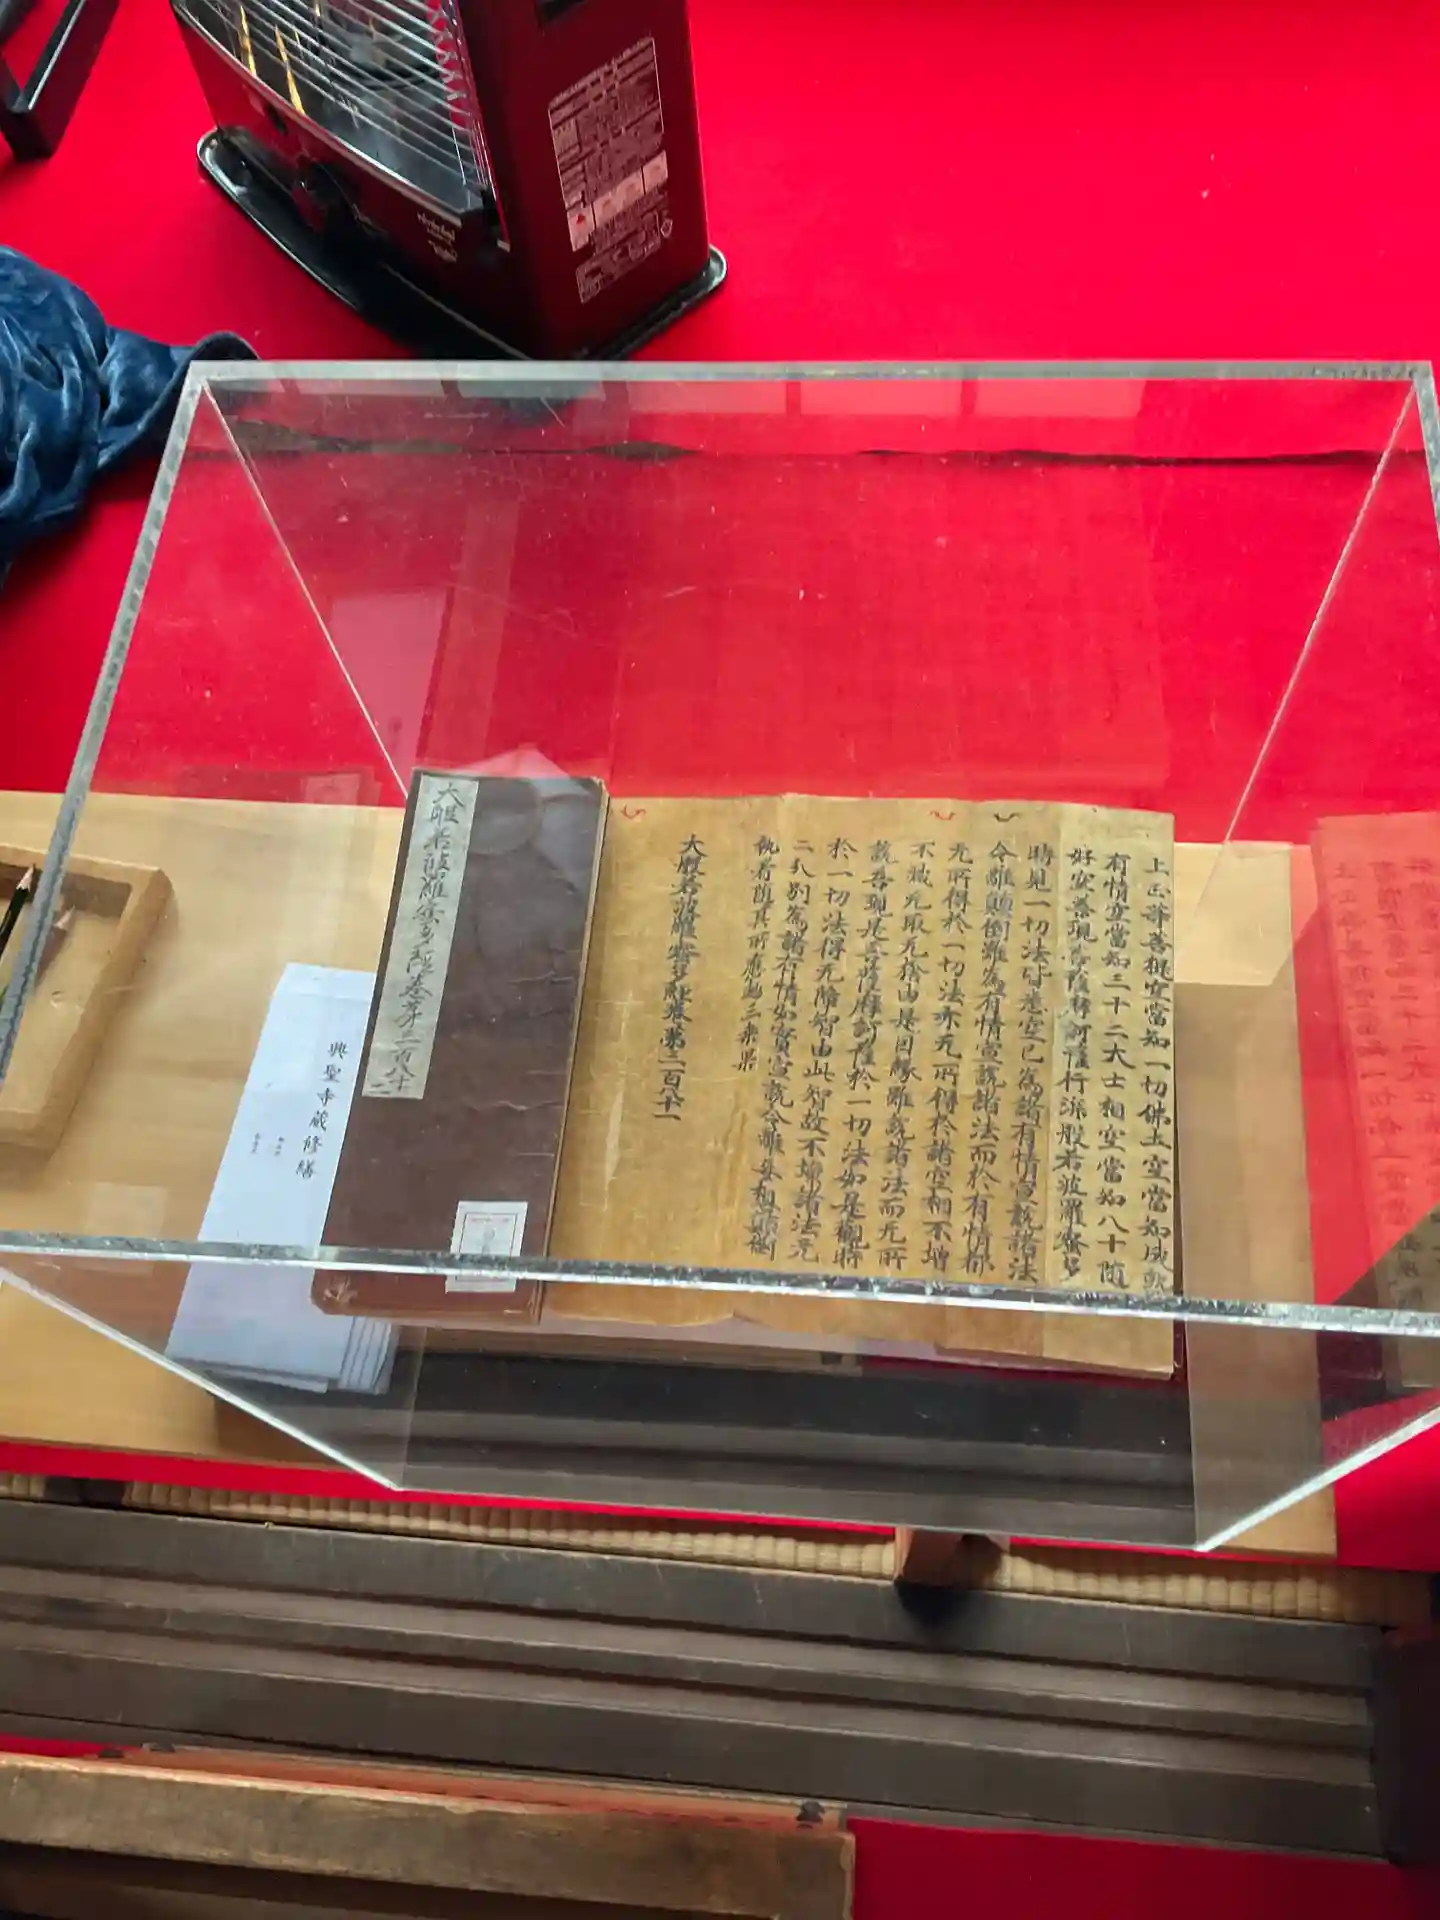 上正等菩提空當知一切佛土空當知成熟
有情空當知三十二大士相空當知八十隨
好空善現菩薩摩訶薩行深般若波羅蜜多
時見一切法皆悉空已為諸有情宣說諸法
令離顛倒雖為有情宣說諸法而於有情都
无所得於一切法亦无所得於諸空相不增
不減无取无捨由是因緣雖說諸法而无所
說善現是菩薩摩訶薩於一切法如是觀時
於一切法得无障智由此智故不壞諸法无
二分別為諸有情如實宣說令離妄想顛倒
執著隨其所應趣三乘果
大般若波羅蜜多經卷第三百八十一
大般若波羅蜜多經卷第三百八十一
興聖寺蔵修繕